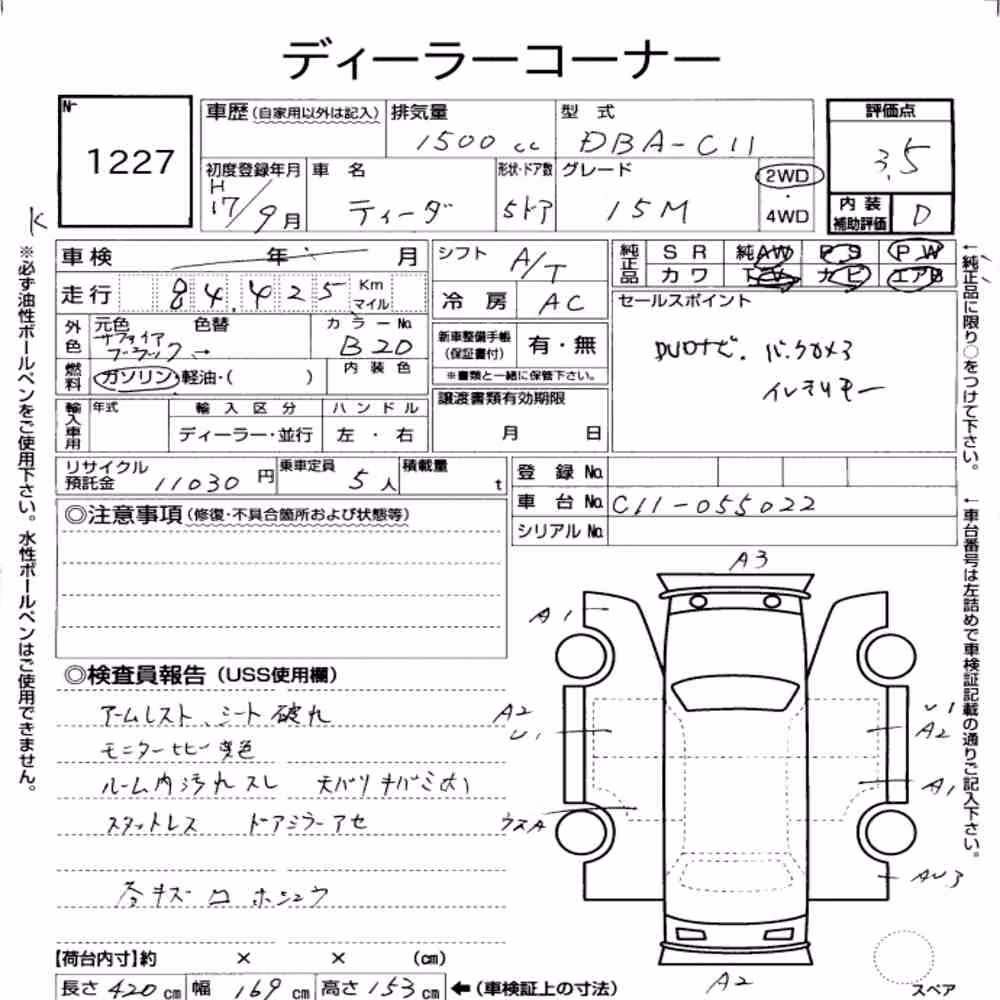 ディーラーコーナー
No
1227
車歴(自家用以外は記入)
排気量
1500 cc
型式
DBA-C11
評価点
3.5
初度登録年月
H
17/9月
車名
ティーダ
形状・ドア数
5ドア
グレード
15M
2WD
・
4WD
内装
補助評価
D
K
車検 年 月
シフト
A/T
純正品
SR 純AW PS PW
カワ カビ エアB
走行 84,425 Km
マイル
冷房
AC
セールスポイント
外色
元色 色替
カラーNo.
B20
新車整備手帳
(保証書付)
有・無
※書類と一緒に保管下さい。
DVDナビ. バックカメラ
燃料
ガソリン・軽油・( )
内装色
輸入車用
年式
輸入区分
ハンドル
ディーラー・並行
左・右
譲渡書類有効期限
月 日
リサイクル
預託金
11030 円
乗車定員
5人
積載量
t
登録No.
車台No. C11-055022
シリアルNo.
◎注意事項(修復・不具合箇所および状態等)
A3
A1
◎検査員報告(USS使用欄)
アームレスト、シート破れ
A2
U1
U1
A2
モニターヒビ 変色
ルーム内汚れスレ
A1
スタットレス ドアミラーアセ
ウスA
AU3
【荷台内寸】約 × × (cm)
A2
スペア
長さ 420 cm 幅 169 cm 高さ 153 cm ←(車検証上の寸法)
※必ず油性ボールペンをご使用下さい。水性ボールペンはご使用できません。
←純正品に限り○をつけて下さい。
←車台番号は左詰めで車検証記載の通りご記入下さい。